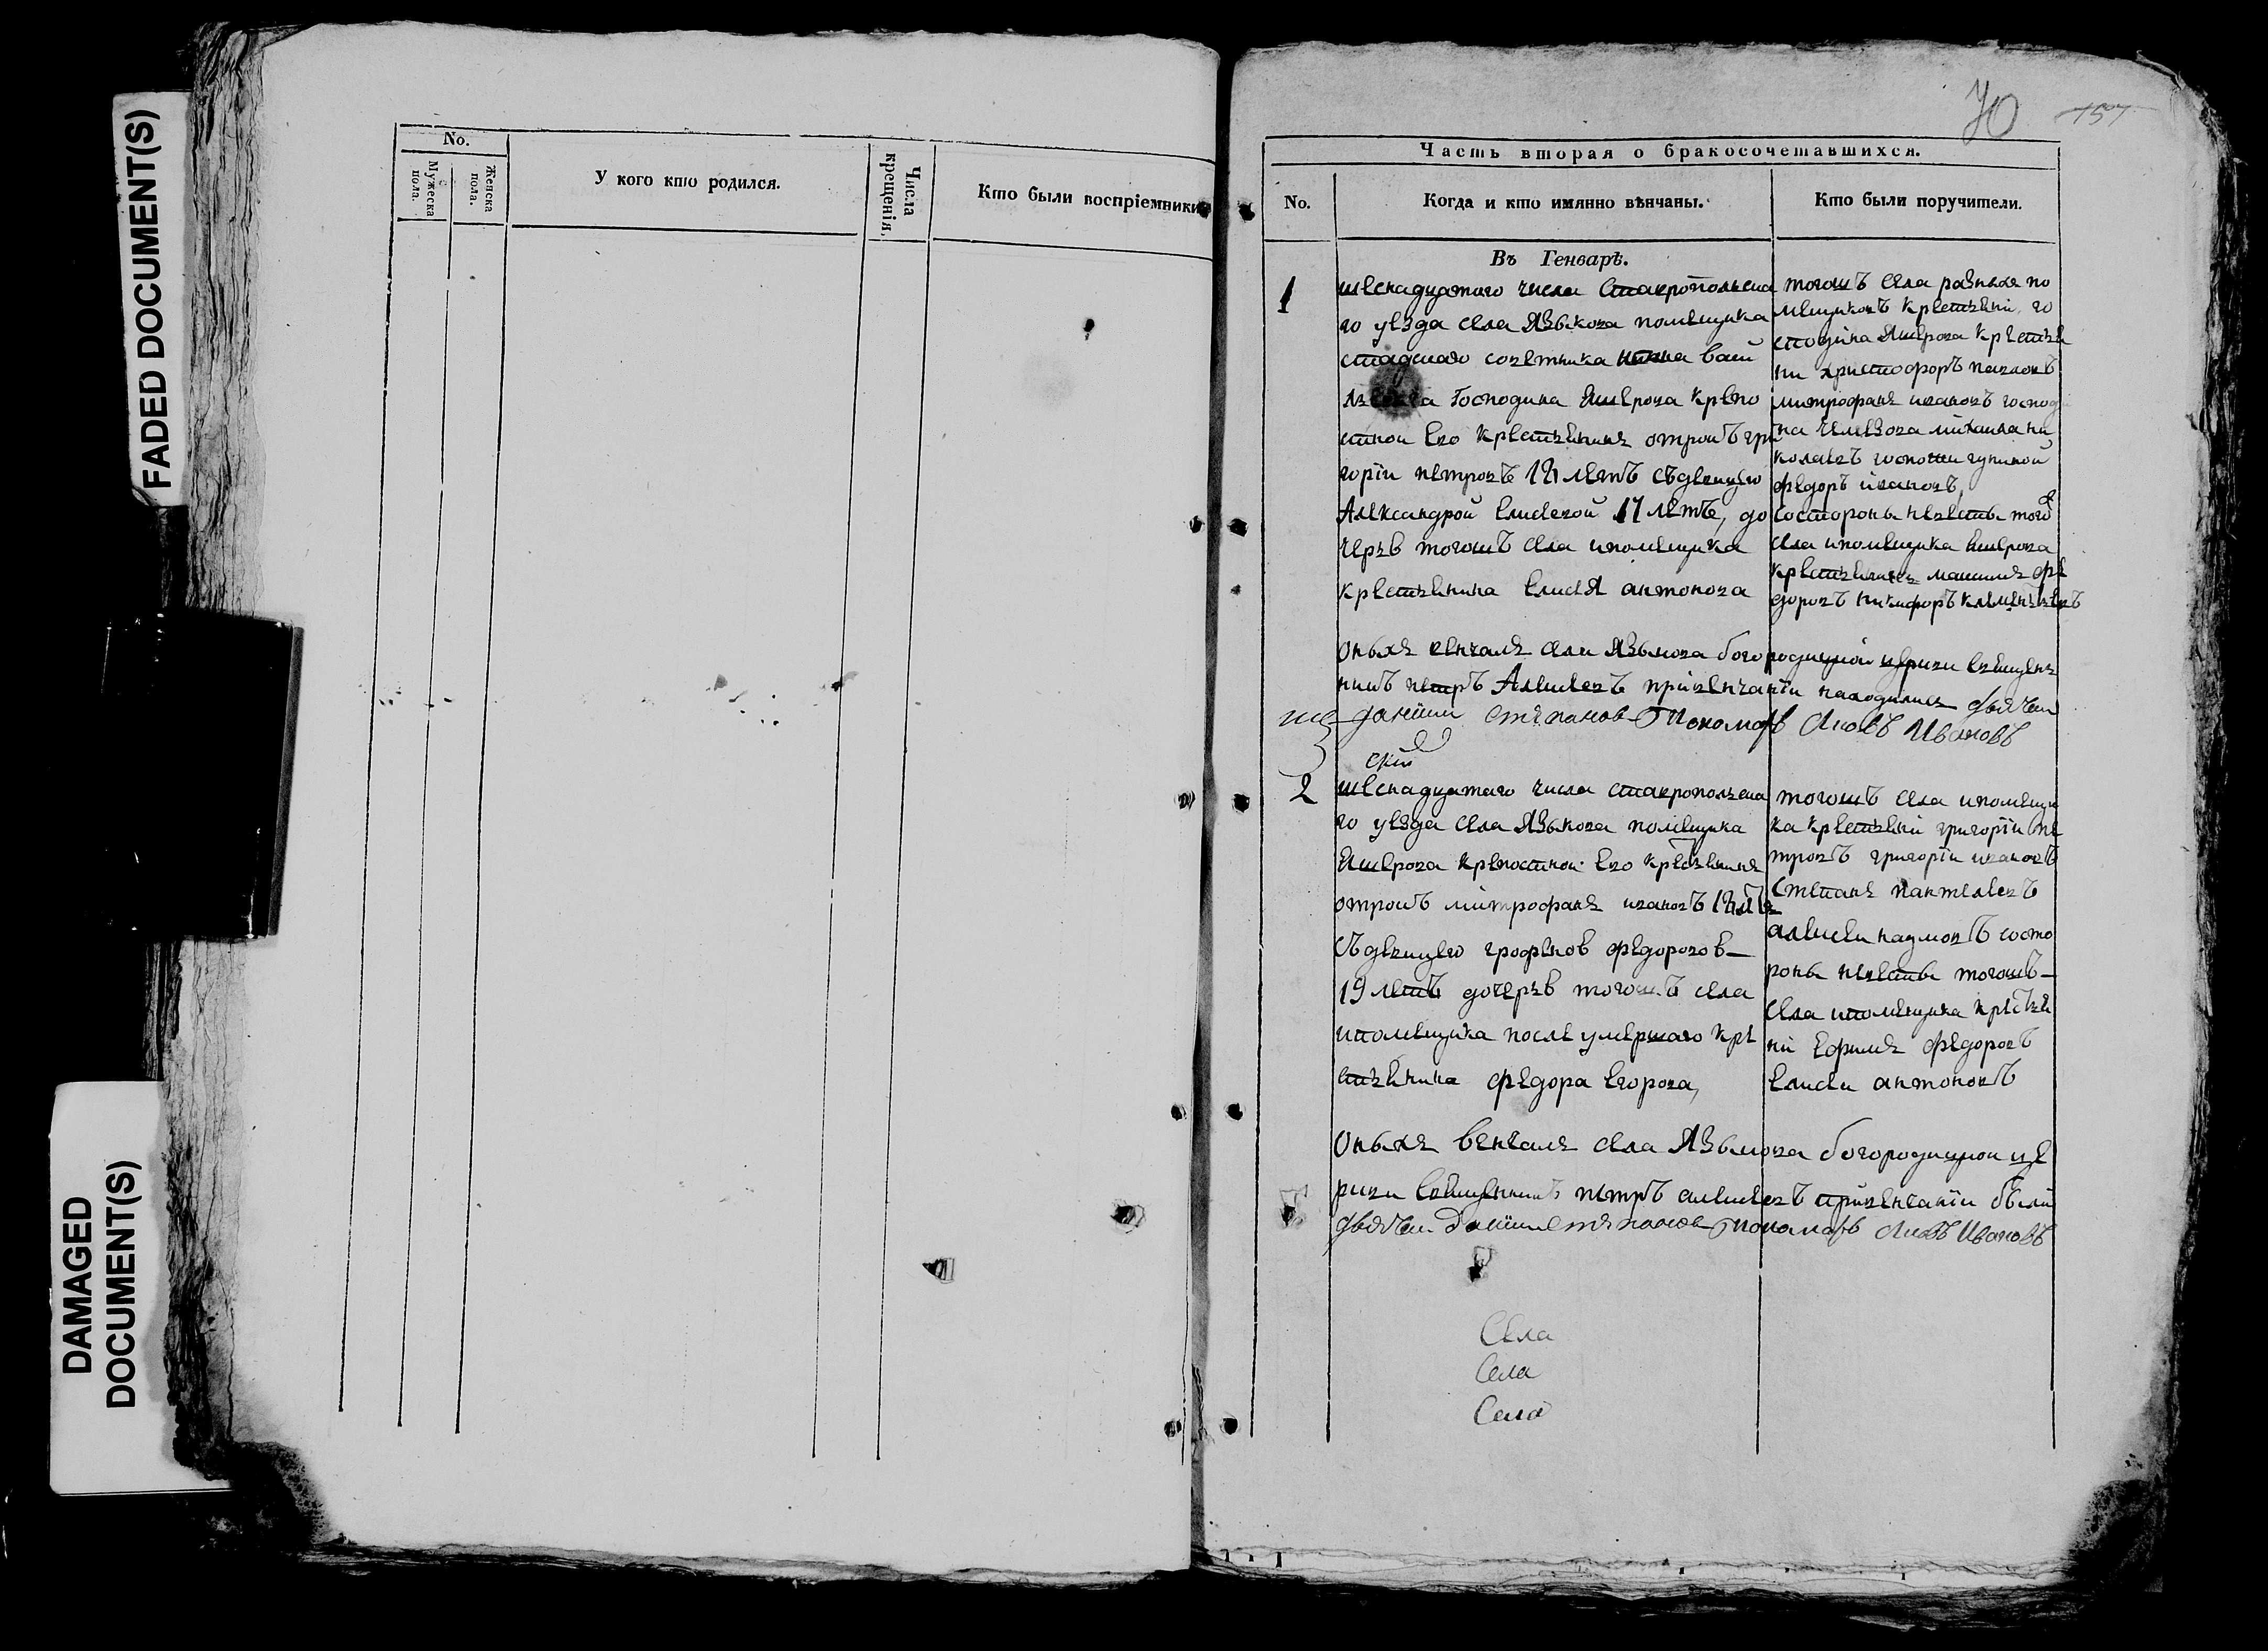 FADED DOCUMENT(S)
DAMAGED
DOCUMENT(S)
No.
Мужеска пола.
Женска пола.
У кого кто родился.
Числа крещенія.
Кто были воспріемники
70
157
Часть вторая о бракосочетавшихся.
No.
Когда и кто имянно вѣнчаны.
Кто были поручители.
Въ Генварѣ.
1
шеснадцатого числа Ставропольска
го уезда села Языкова помещика
статскаго советника
Господина Ешерова крепо
стной его крестьянинъ отрокъ гри
горіи петровъ 18 летъ съдевицею
Александрой Елисевой 17 летъ, до
черью тогошъ села ипомещика
крестьянина Елисея антонова
тогошъ села разныхъ по
мещиковъ крестьяни, го
сподина Яшерова крестья
ни христофоръ павловъ
митрофанъ ивановъ господ
на михаила ни
колаевъ госпожи
федоръ ивановъ,
состороны невесты того
села ипомещика ешерова
крестьянинъ максимъ фе
доровъ никифоръ клементьевъ
оныхъ венчалъ села Языкова богородицкой церкви священ
никъ петръ Алексеевъ привенчаніи находились дьячекъ
Степановъ Пономарь Яковъ Ивановъ
ский
2
шеснадцатаго числа ставропольска
го уезда села Языкова помещика
Ешерова крепостной его крестьянинъ
отрокъ митрофанъ ивановъ 18 летъ
съдевицею грофеной федоровой
19 летъ дочерью тогошъ села
ипомещика после умершаго кре
стьянина федора егорова,
тогошъ села ипомещи
ка крестьяни григоріи пе
тровъ григоріи ивановъ
Степанъ пантелевъ
алексеи наумовъ состо
роны невесты тогошъ
села ипомещика крестья
ни Ефимъ федоровъ
елисеи антоновъ
оныхъ венчалъ села Языкова богородицкои це
ркви священникъ петръ алексеевъ привенчаніи были
дьячекъ Степановъ пономарь Яковъ Ивановъ
Села
Села
Села